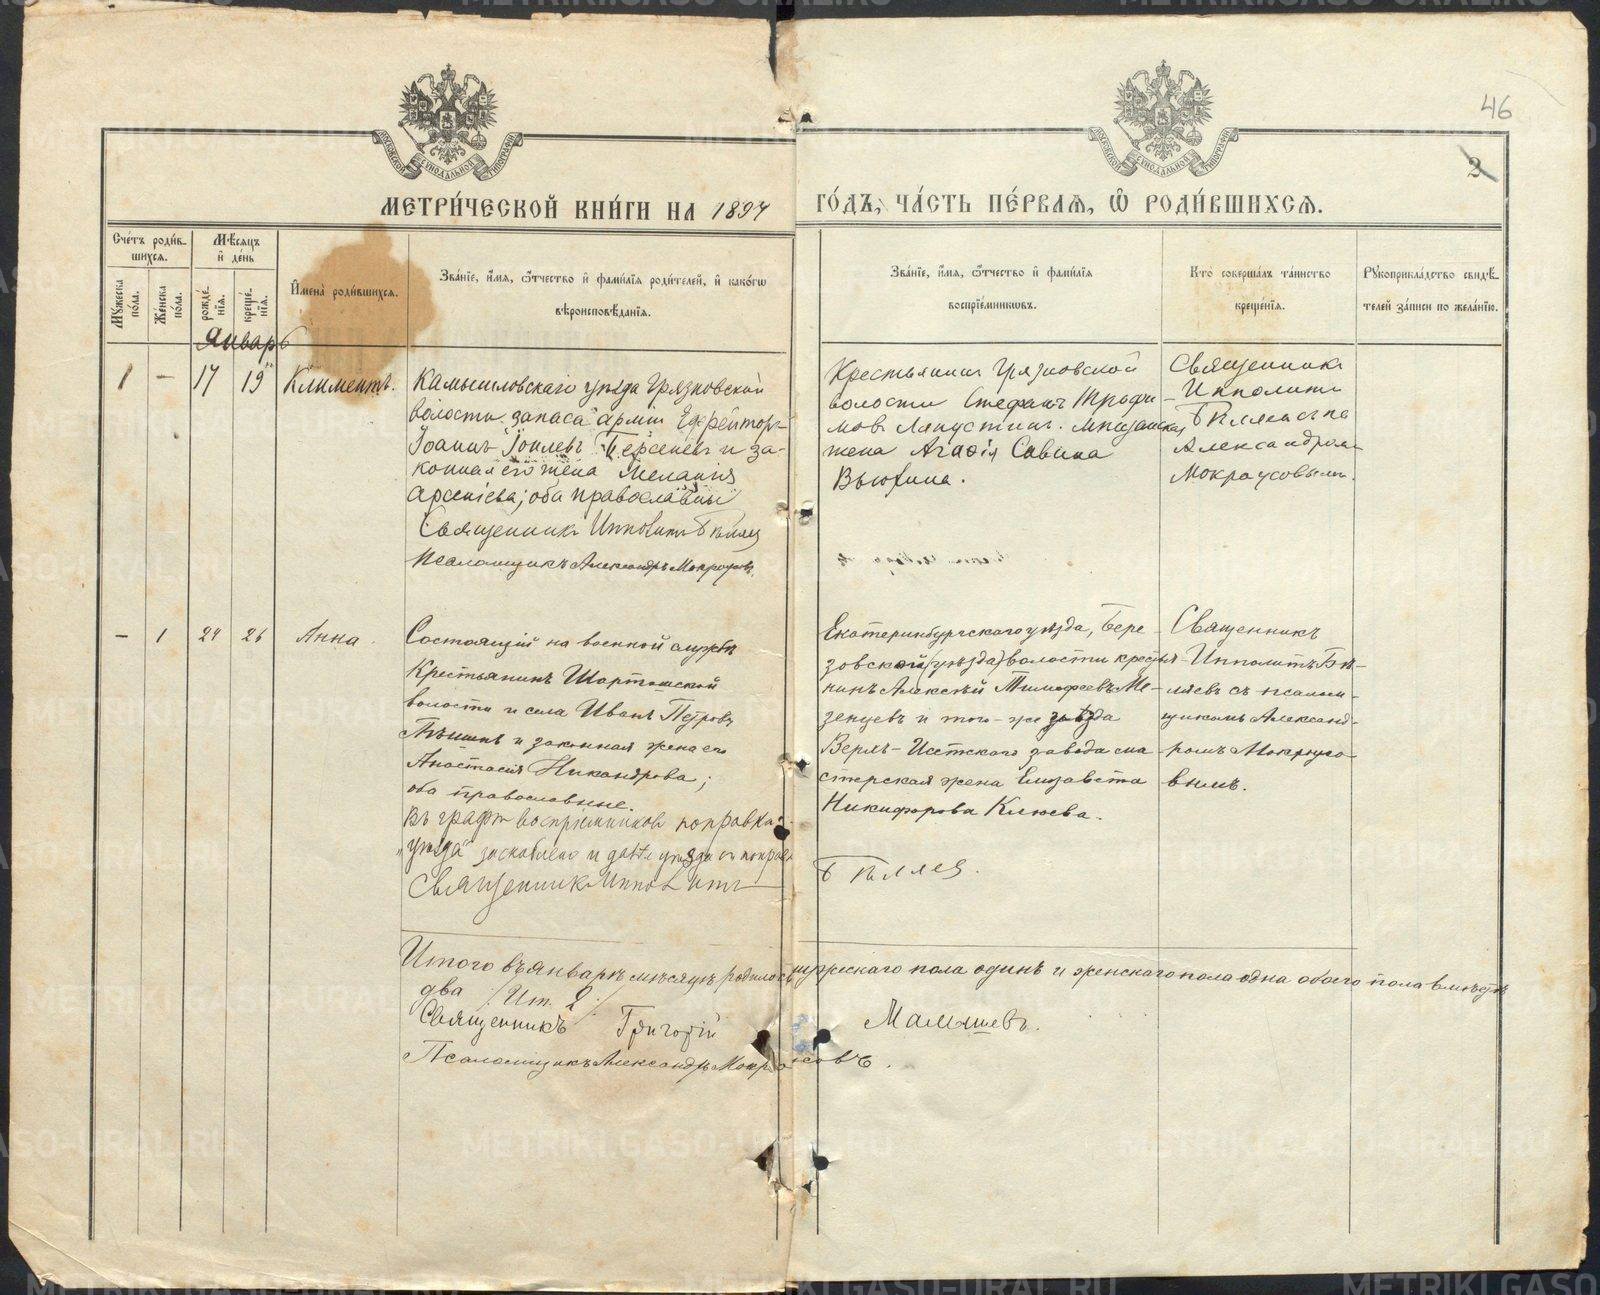 46
2
МОСКОВСКОЙ СѴНОДАЛЬНОЙ ТИПОГРАФІИ
МОСКОВСКОЙ СѴНОДАЛЬНОЙ ТИПОГРАФІИ
МЕТРИ́ЧЕСКОЙ КНИ́ГИ НА 1897 ГО́ДЪ, ЧА́СТЬ ПЕ́РВАѦ, Ѡ РОДИ́ВШИХСѦ.
Сче́тъ роди́в-
шихсѧ.
Мѣ́сѧцъ
и҆ де́нь
Му́жеска
по́ла.
Же́нска
по́ла.
рожде́-
нїѧ.
креще́-
нїѧ.
И҆мена̀ роди́вшихсѧ.
Зва́нїе, и҆́мѧ, ѻ҆́тчество и҆ фами́лїѧ роди́телей, и҆ како́гѡ
вѣроисповѣ́данїѧ.
Зва́нїе, и҆́мѧ, ѻ҆́тчество и҆ фами́лїѧ
воспрїе́мникѡвъ.
Кто̀ соверша́лъ та́инство
креще́нїѧ.
Рꙋкоприкла́дство свидѣ́-
телей за́писи по жела́нїю.
Январь
1 — 17 19 Климентъ.
Камышловскаго уѣзда Грязновской
волости запаса арміи Ефрейторъ
Іоаннъ Іоилевъ Берсеневъ и за-
конная его жена Меланія
Арсеніева; оба православныи
Священникъ Ипполитъ Бѣляев
Псаломщикъ Александръ Мокроусов.
Крестьянинъ Грязновской
волости Стефанъ Трофи-
мовъ Ляпустинъ. мѣщанская
жена Агафія Савина
Вьюхина.
Священникъ
Ипполитъ
Бѣляевъ съ пс
Александром
Мокроусовымъ.
— 1 24 26 Анна
Состоящій на военной службѣ
Крестьянинъ Шарташской
волости и села Иванъ Петровъ
и законная жена его
Анастасія Никандрова;
оба православные.
Въ графѣ воспріемниковъ поправка:
„уѣзда“ заскоблено и далѣе уѣзда
Священникъ Ипполитъ
Екатеринбургскаго уѣзда, Бере-
зовской (уѣзда) волости кресть-
нинъ Алексѣй Тимофеевъ Ме-
зенцевъ и того-же уѣзда
Верхъ-Исетскаго завода ма-
стерская жена Елизавета
Никифорова Клюева.
Бѣляев.
Священникъ
Ипполитъ Бѣ-
ляевъ съ псалом-
щикомъ Александ-
ромъ Мокроусо-
вымъ.
Итого въ январѣ мѣсяцѣ родилось мужескаго пола одинъ и женскаго пола одна обоего пола вмѣстѣ
два /Ит. 2/
Священникъ Григорій Малышевъ.
Псаломщикъ Александръ Мокроусовъ.
METRIKI.GASO-URAL.RU